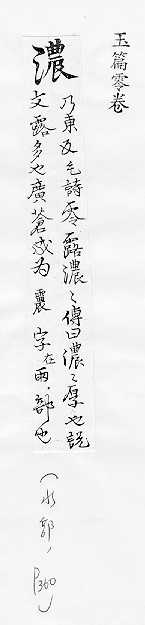 玉篇零卷
濃
乃東反毛詩零露濃〻傳曰濃〻厚也說
文露多也廣蒼或為震字在雨部也
(水部, P360)